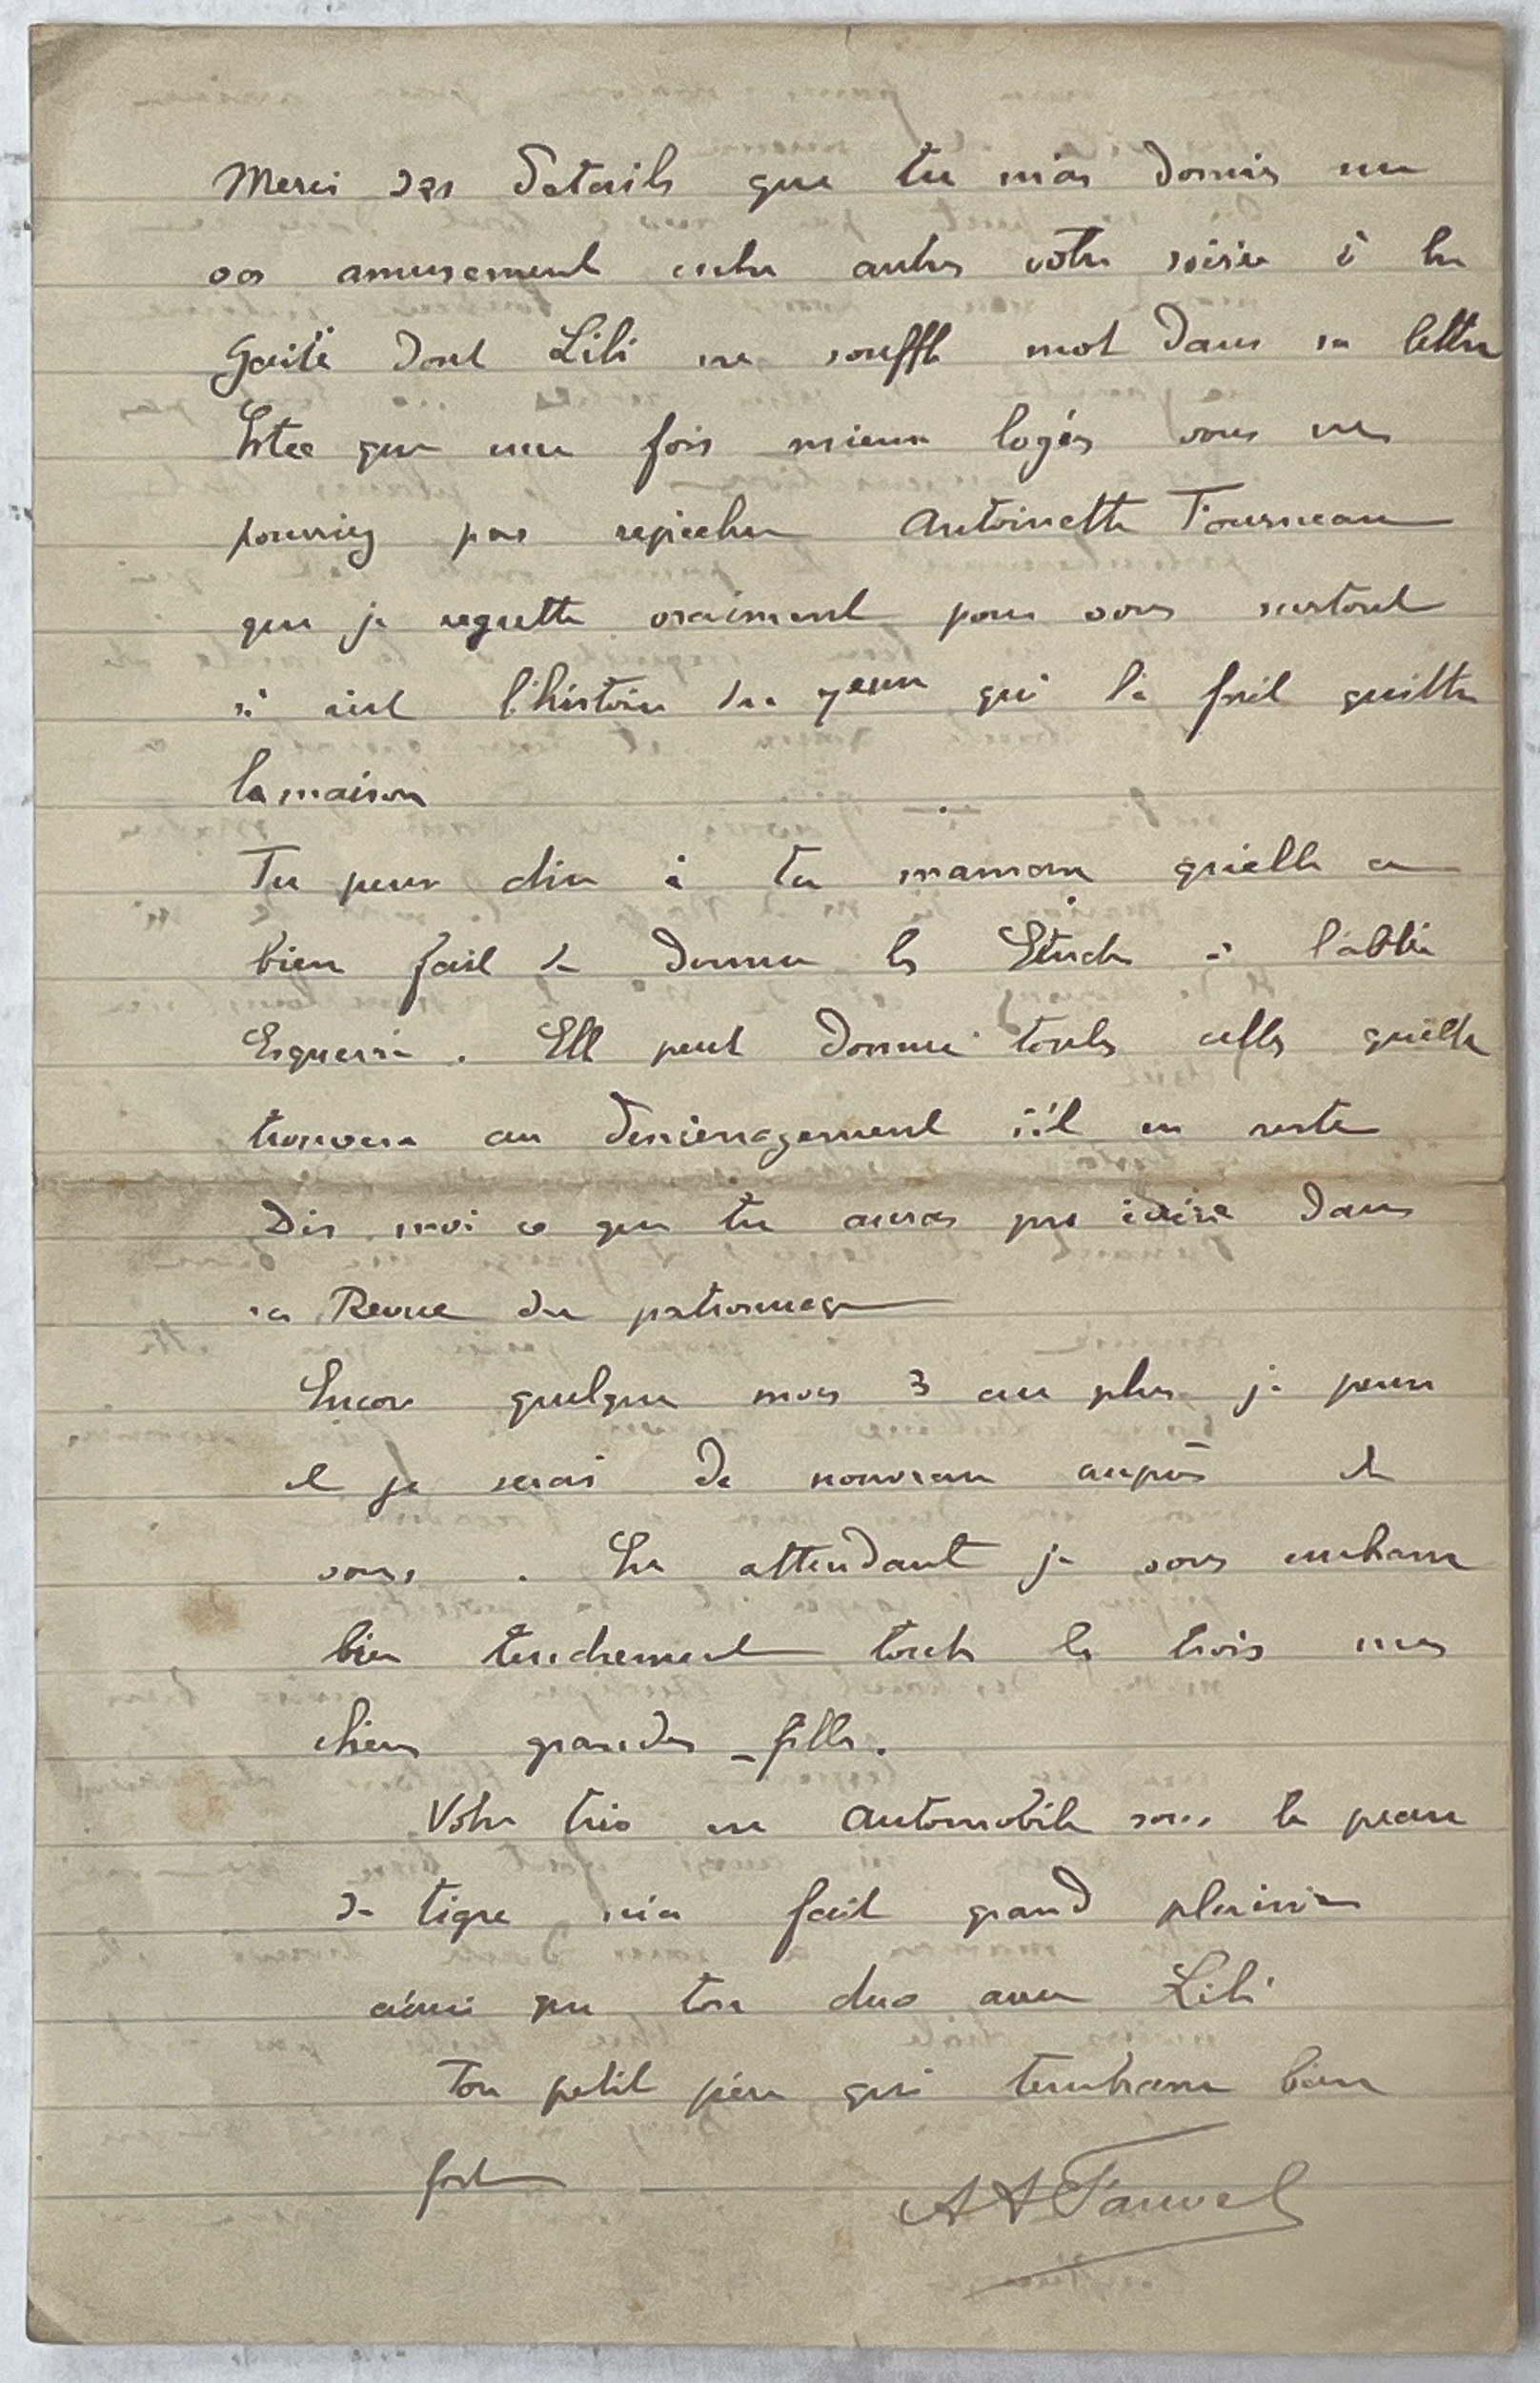 Merci des détails que tu m'as donnés sur
vos amusements entre autres votre soirée à la
Gaité dont Lili ne souffle mot dans sa lettre
Estce que une fois mieux logés vous ne
pourriez pas repêcher Antoinette Fourneau
que je regrette vraiment pour vous surtout
si c'est l'histoire des yeux qui l'a fait quitter
la maison
Tu peux dire à ta maman qu'elle a
bien fait de donner les Etudes à l'abbé
Esquerré. Elle peut donner toutes celles qu'elle
trouvera au déménagement s'il en reste
Dis moi ce que tu auras pu écrire dans
sa Revue du patronage
Encore quelques mois 3 au plus je pense
et je serai de nouveau auprès de
vous. En attendant je vous embrasse
bien tendrement toutes les trois mes
chères grandes filles.
Votre trio en automobile sous la peau
de tigre m'a fait grand plaisir
ainsi que ton duo avec Lili
Ton petit père qui t'embrasse bien
fort
A A Fauvel